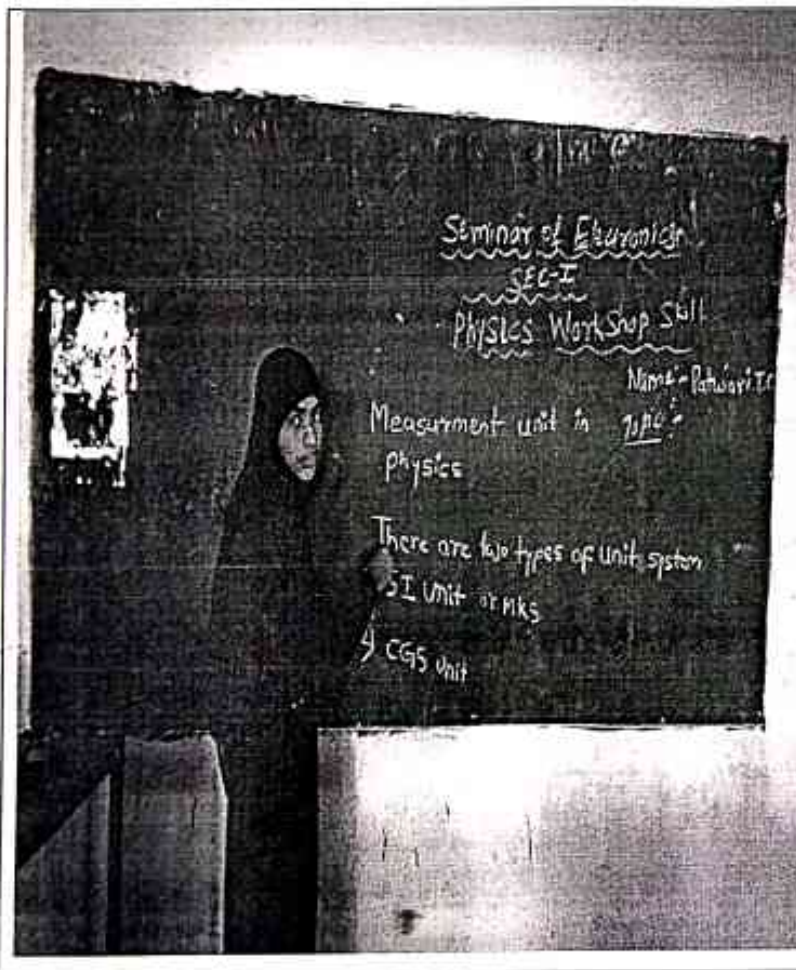 Seminar of
SEC-I
Physics Workshop Skill
Name:- Patwari
Measurment unit in
physics
There are two types of unit system
SI Unit or MKS
CGS unit